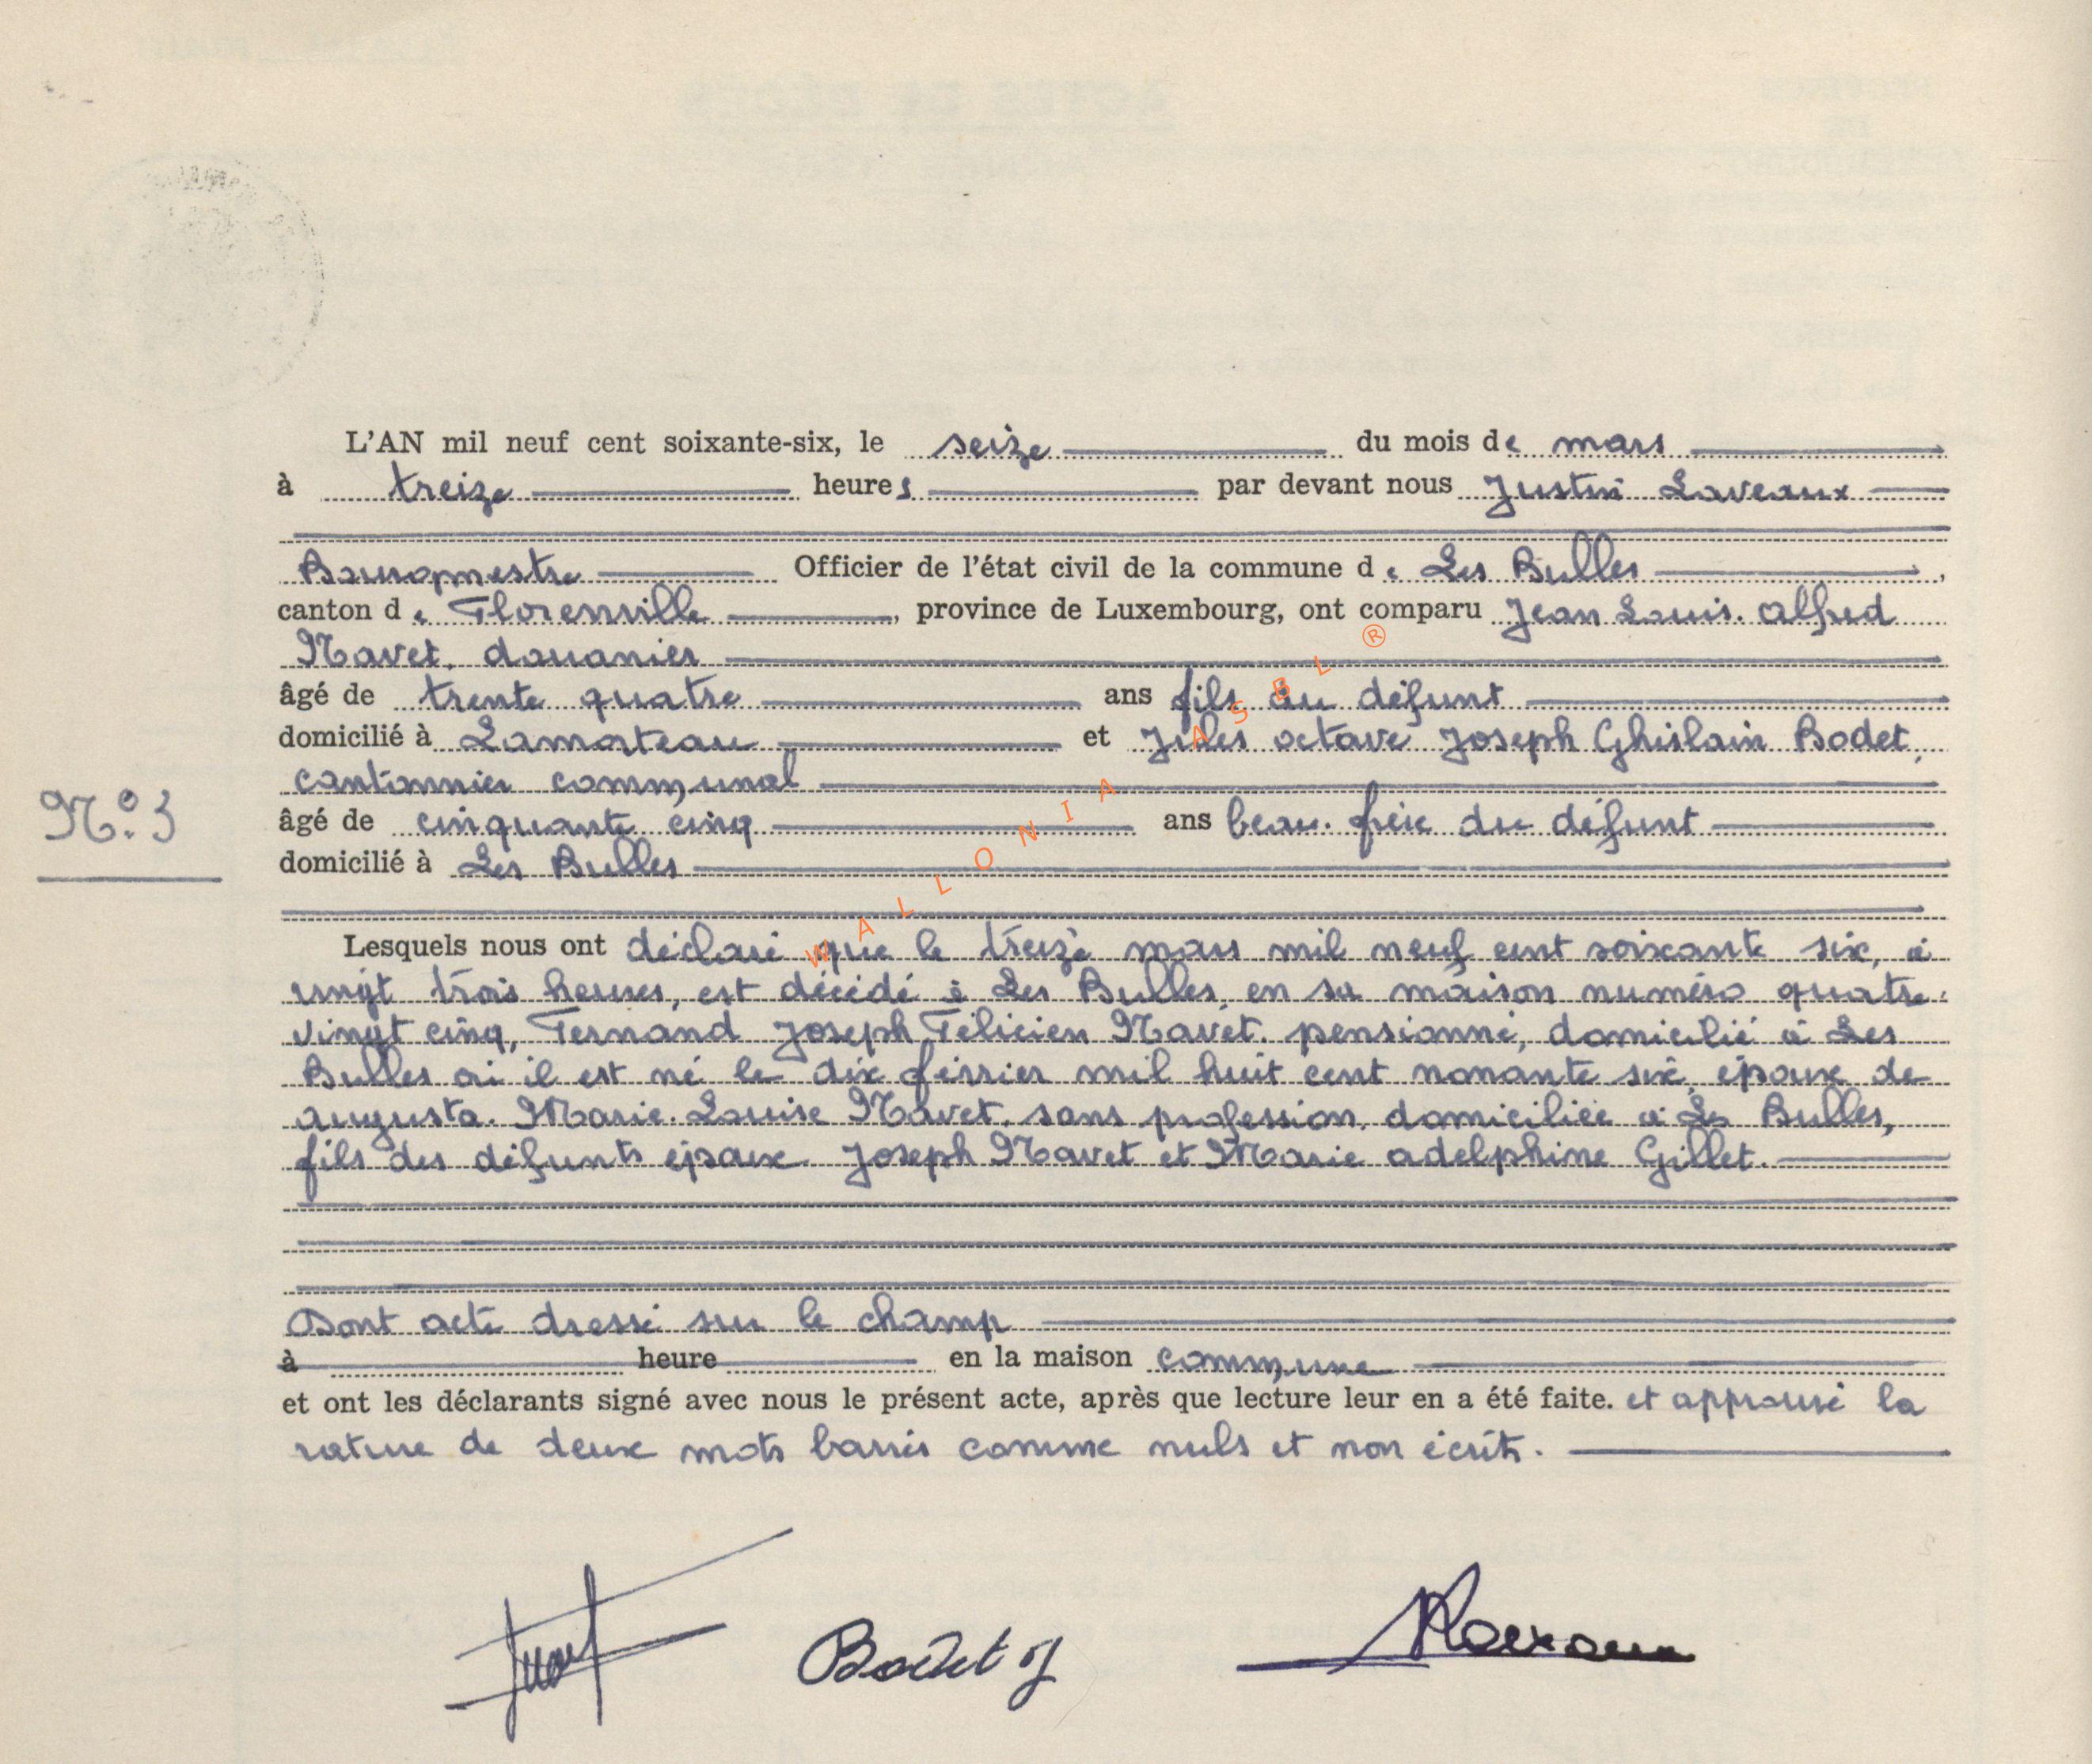 L'AN mil neuf cent soixante-six, le seize du mois de mars
à treize heures par devant nous Justin Laveaux
Bourgmestre Officier de l'état civil de la commune de Les Bulles,
canton de Florenville, province de Luxembourg, ont comparu Jean Louis. Alfred
Navet, douanier
âgé de trente quatre ans fils du défunt
domicilié à Lamorteau et Jules Octave Joseph Ghislain Bodet,
cantonnier communal
N° 3
âgé de cinquante cinq ans beau-frère du défunt
domicilié à Les Bulles
Lesquels nous ont déclaré que le treize mars mil neuf cent soixante six, à
vingt trois heures, est décédé à Les Bulles, en sa maison numéro quatre-
vingt cinq, Fernand Joseph Félicien Navet. pensionné, domicilié à Les
Bulles où il est né le dix février mil huit cent nonante six, époux de
Augusta. Marie. Louise Navet. sans profession. domiciliée à Les Bulles,
fils des défunts époux Joseph Navet et Marie Adelphine Gillet.
Dont acte dressé sur le champ
à heure en la maison commune
et ont les déclarants signé avec nous le présent acte, après que lecture leur en a été faite. et approuvé la
rature de deux mots barrés comme nuls et non écrits.
Bodet J
WALLONIA ASBL ®